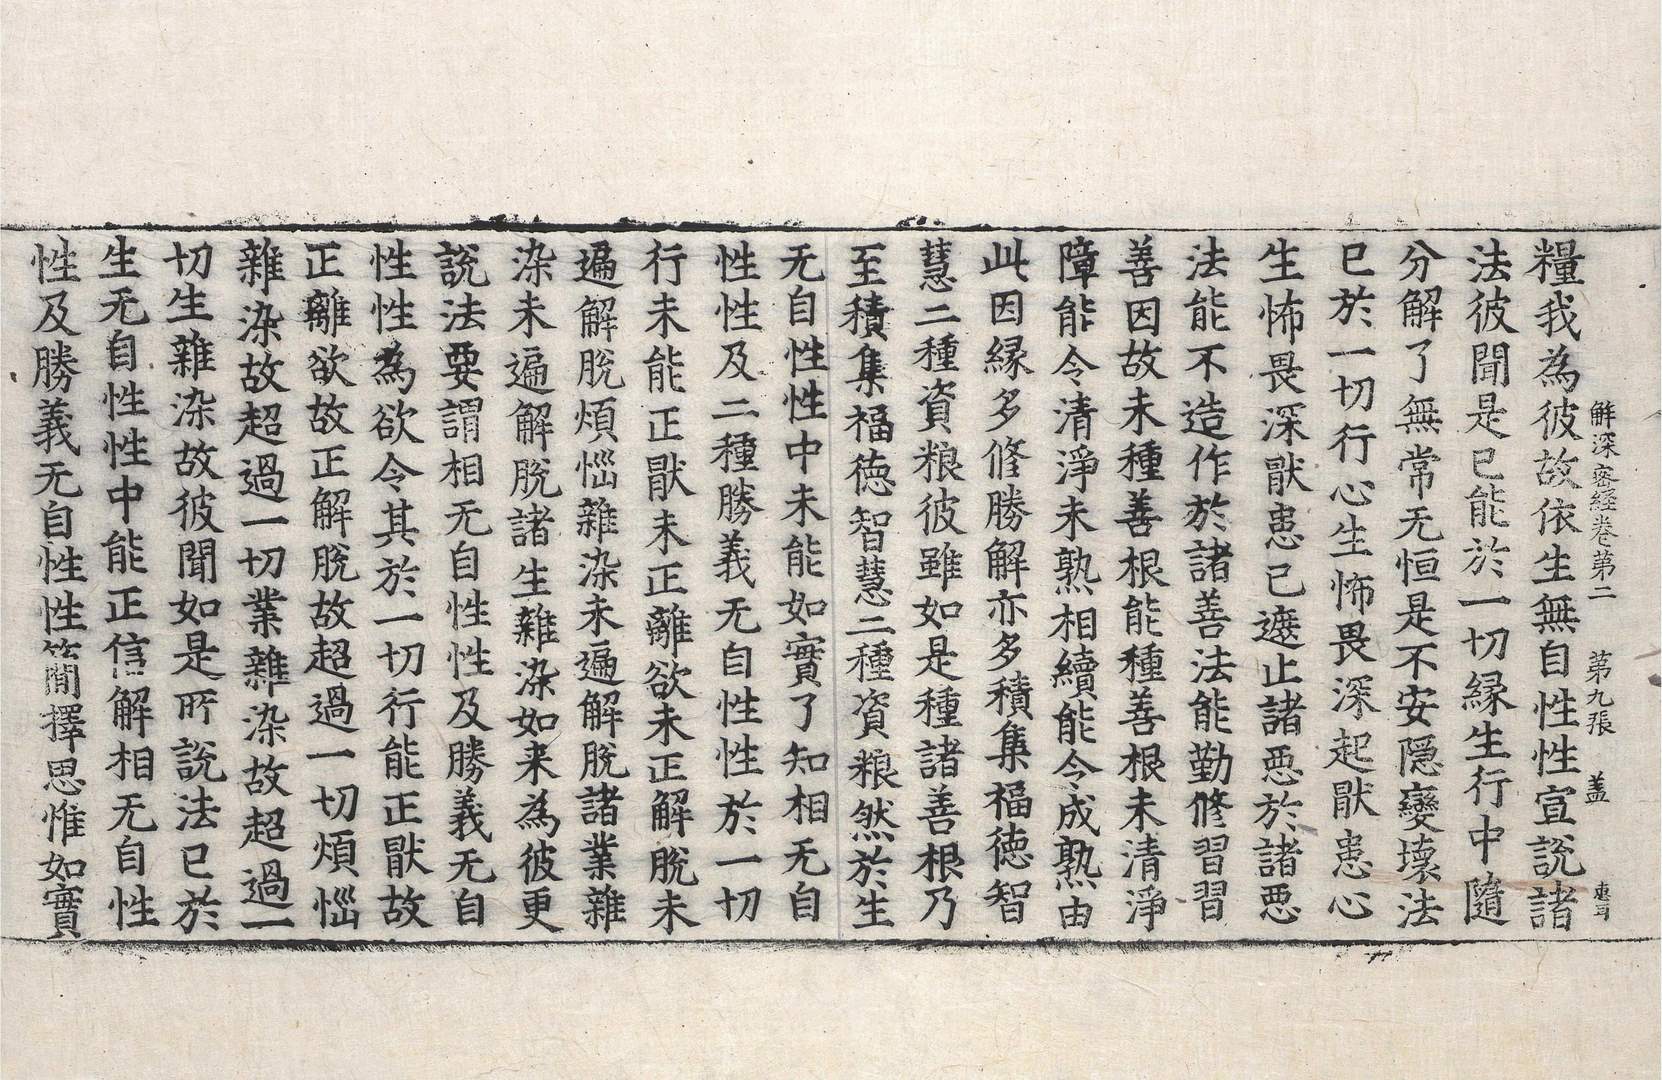 解深密經卷第二 第九張 盖
糧我為彼故依生無自性性宣說諸
法彼聞是已能於一切緣生行中隨
分解了無常无恒是不安隱變壞法
已於一切行心生怖畏深起猒患心
生怖畏深猒患已遮止諸惡於諸惡
法能不造作於諸善法能勤修習習
善因故未種善根能種善根未清淨
障能令清淨未熟相續能令成熟由
此因緣多修勝解亦多積集福德智
慧二種資粮彼雖如是種諸善根乃
至積集福德智慧二種資粮然於生
无自性性中未能如實了知相无自
性性及二種勝義无自性性於一切
行未能正猒未正離欲未正解脫未
遍解脫煩惱雜染未遍解脫諸業雜
染未遍解脫諸生雜染如来為彼更
說法要謂相无自性性及勝義无自
性性為欲令其於一切行能正猒故
正離欲故正解脫故超過一切煩惱
雜染故超過一切業雜染故超過一
切生雜染故彼聞如是所說法已於
生无自性性中能正信解相无自性
性及勝義无自性性簡擇思惟如實